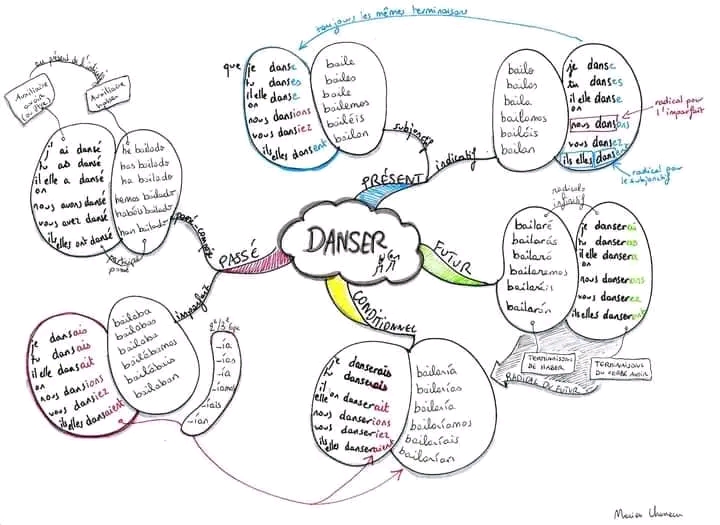 toujours les mêmes terminaisons
que je danse
tu danses
il elle danse
on
nous dansions
vous dansiez
ils elles dansent
baile
bailes
baile
bailemos
bailéis
bailen
subjonctif
bailo
bailas
baila
bailamos
bailáis
bailan
indicatif
je danse
tu danses
il elle danse
on
nous dansons
vous dansez
ils elles dansent
radical pour
l'imparfait
radical pour
le subjonctif
PRÉSENT
au présent de l'indicatif
Auxiliaire
avoir
(ou être)
Auxiliaire
haber
j'ai dansé
tu as dansé
il elle a dansé
on
nous avons dansé
vous avez dansé
ils elles ont dansé
he bailado
has bailado
ha bailado
hemos bailado
habéis bailado
han bailado
participe
passé
passé-composé
PASSÉ
DANSER
FUTUR
radicals
infinitif
bailaré
bailarás
bailará
bailaremos
bailaréis
bailarán
je danserai
tu danseras
il elle dansera
on
nous danserons
vous danserez
ils elles danseront
TERMINAISONS
DE HABER
TERMINAISONS
DU VERBE AVOIR
RADICAL DU FUTUR
imparfait
je dansais
tu dansais
il elle dansait
on
nous dansions
vous dansiez
ils elles dansaient
bailaba
bailabas
bailaba
bailábamos
bailabais
bailaban
2e/3e gpe
-ía
-ías
-ía
-íamos
-íais
-ían
CONDITIONNEL
je danserais
tu danserais
il
elle danserait
on
nous danserions
vous danseriez
ils
elles danseraient
bailaría
bailarías
bailaría
bailaríamos
bailaríais
bailarían